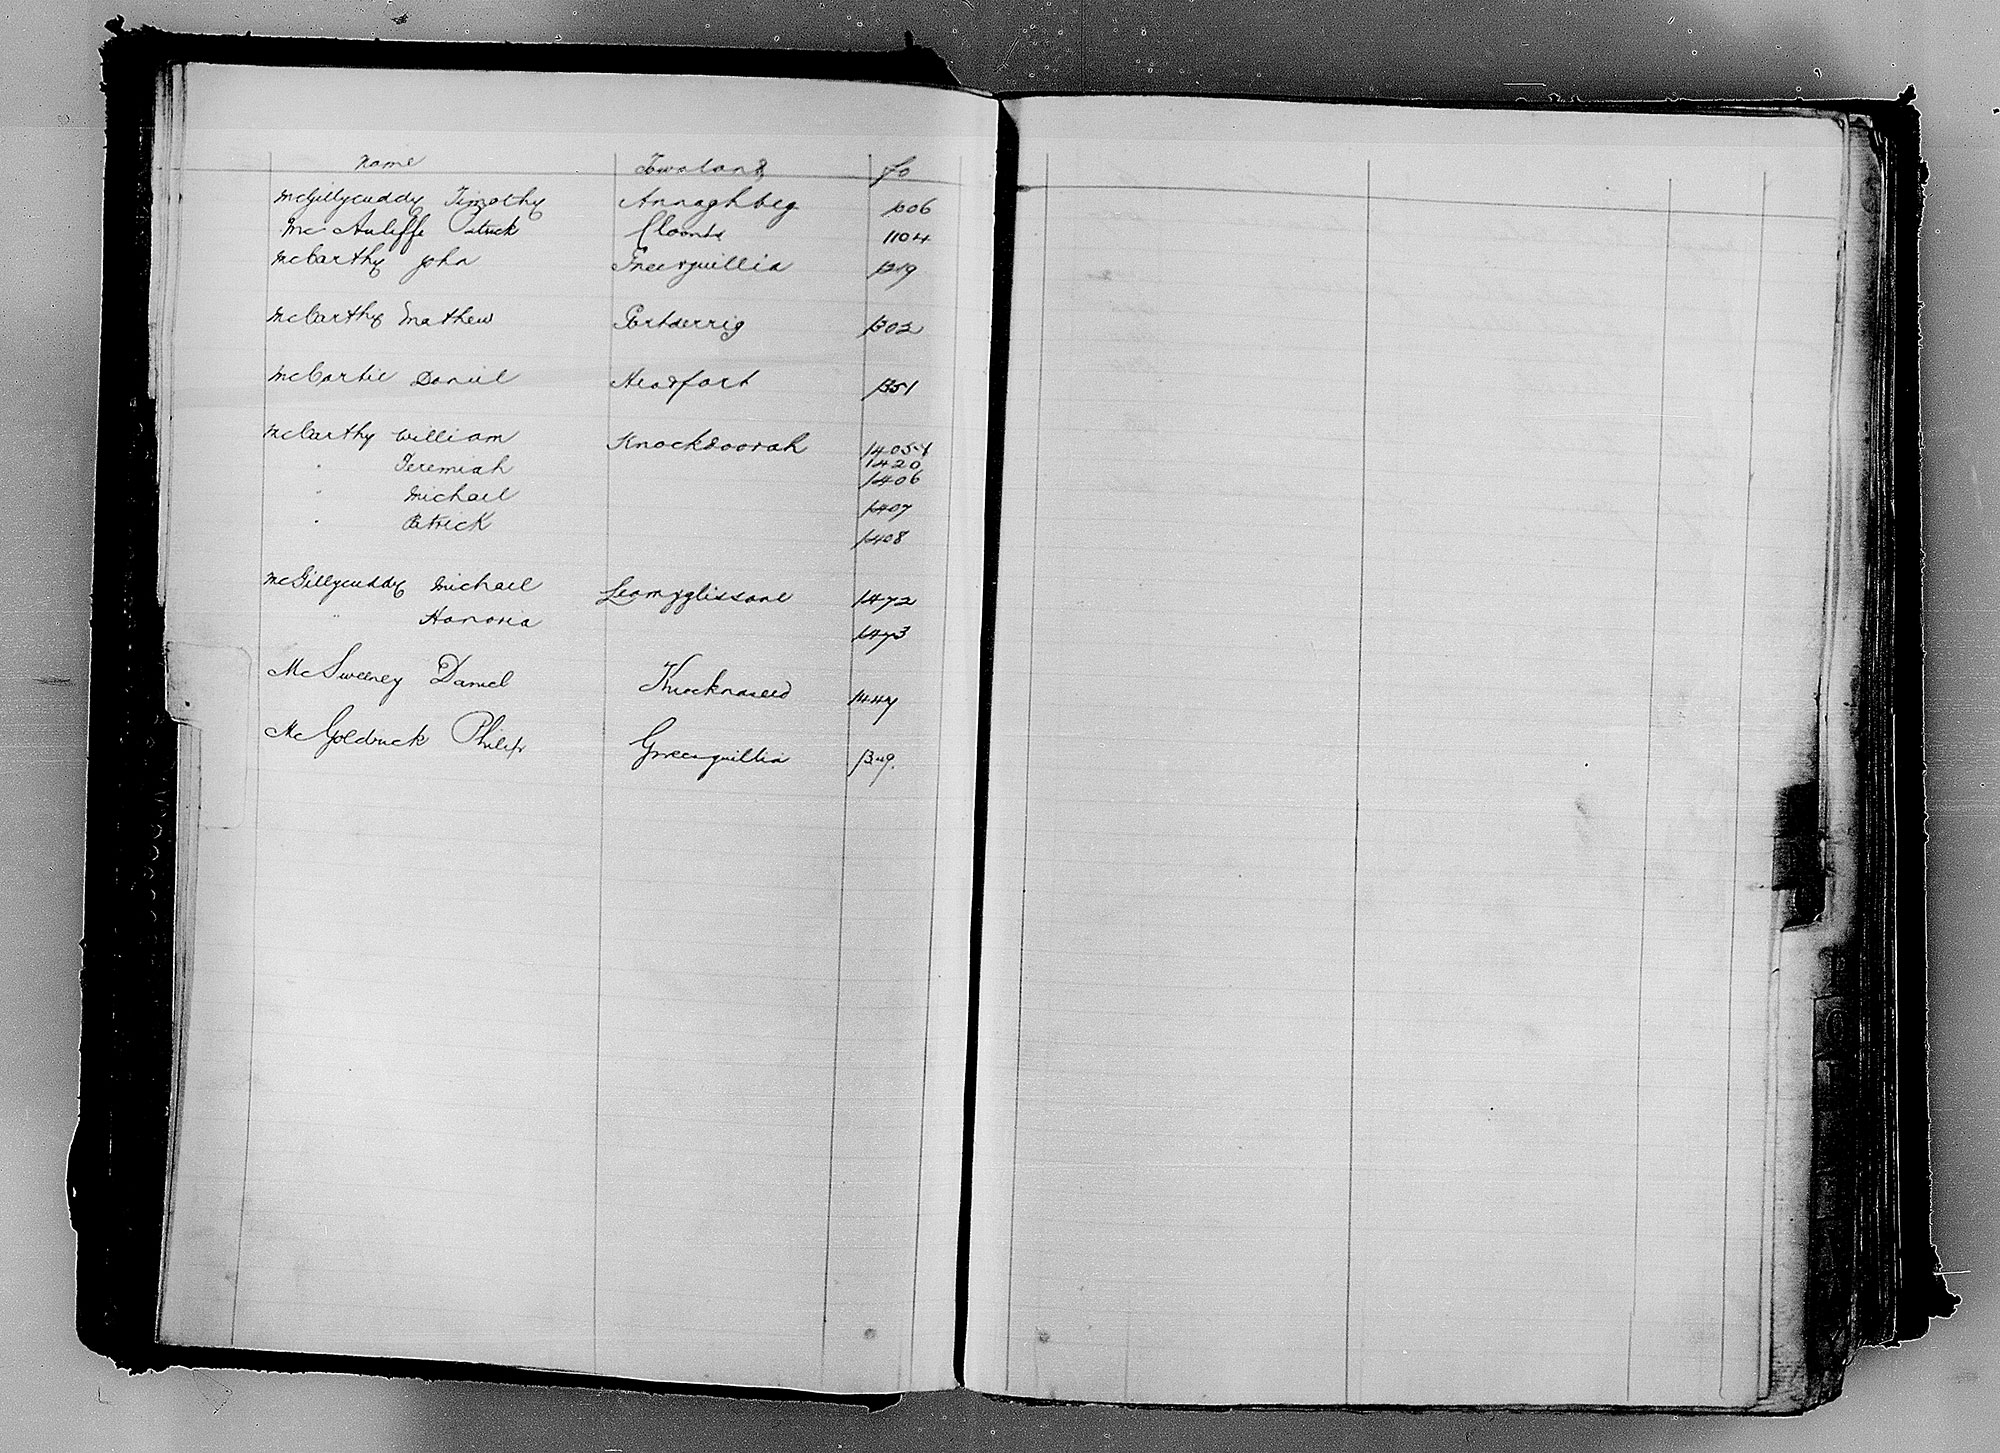 Name Townland Fo
McGillycuddy Timothy Annaghbeg 1006
McAuliffe Patrick Cloonts 1104
McCarthy John Gneevguillia 1219
McCarthy Mathew Gortderrig 1302
McCartie Daniel Headfort 1351
McCarthy William Knockdoorah 1405
" Jeremiah 1420
1406
" Michael 1407
" Patrick 1408
McGillycuddy Michael Leamyglissane 1472
" Honoria 1473
McSweeney Daniel Knocknaseed 1447
McGoldrick Philip Gneevguillia